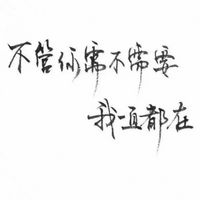 不管你需不需要
我一直都在